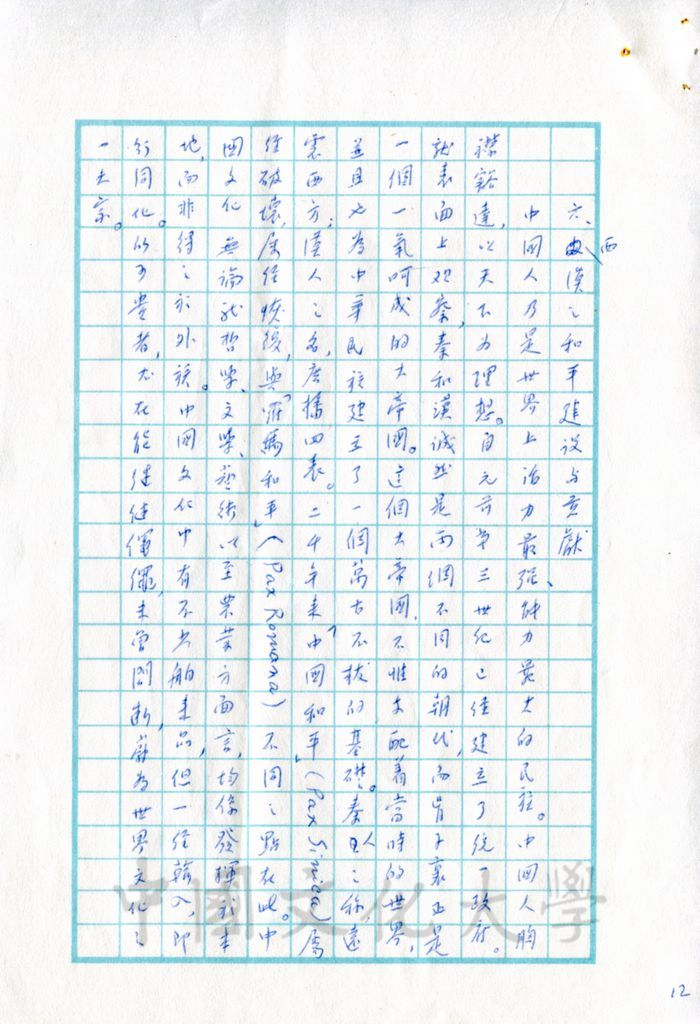 六、西漢之和平建設与貢獻、
中國人乃是世界上活力最強、耐力最大的民族。中國人胸
襟豁達，以天下为理想。自元前第三世纪已经建立了统一政府。
就表面上观察，秦和漢誠然是兩個不同的朝代，而骨子裏正是
一個一氣呵成的大帝國。這個大帝國，不惟支配着當時的世界，
並且也为中華民族建立了一個萬古不拔的基礎。秦人之称，遠
震西方；漢人之名，广播四表。二千年来「中國和平」(Pax Sinica)屡
经破壞，屡经恢復，與「羅馬和平」(Pax Romana)不同之點在此。中
國文化無論就哲學、文學、藝術以至農業方面言，均係發揮於本
地，而非得之於外族。中國文化中有不少舶来品，但一经輸入，即
行同化。的可貴者，尤在能继继繩繩，未曾間斷，蔚为世界文化之
一大宗。
12
中國文化大學